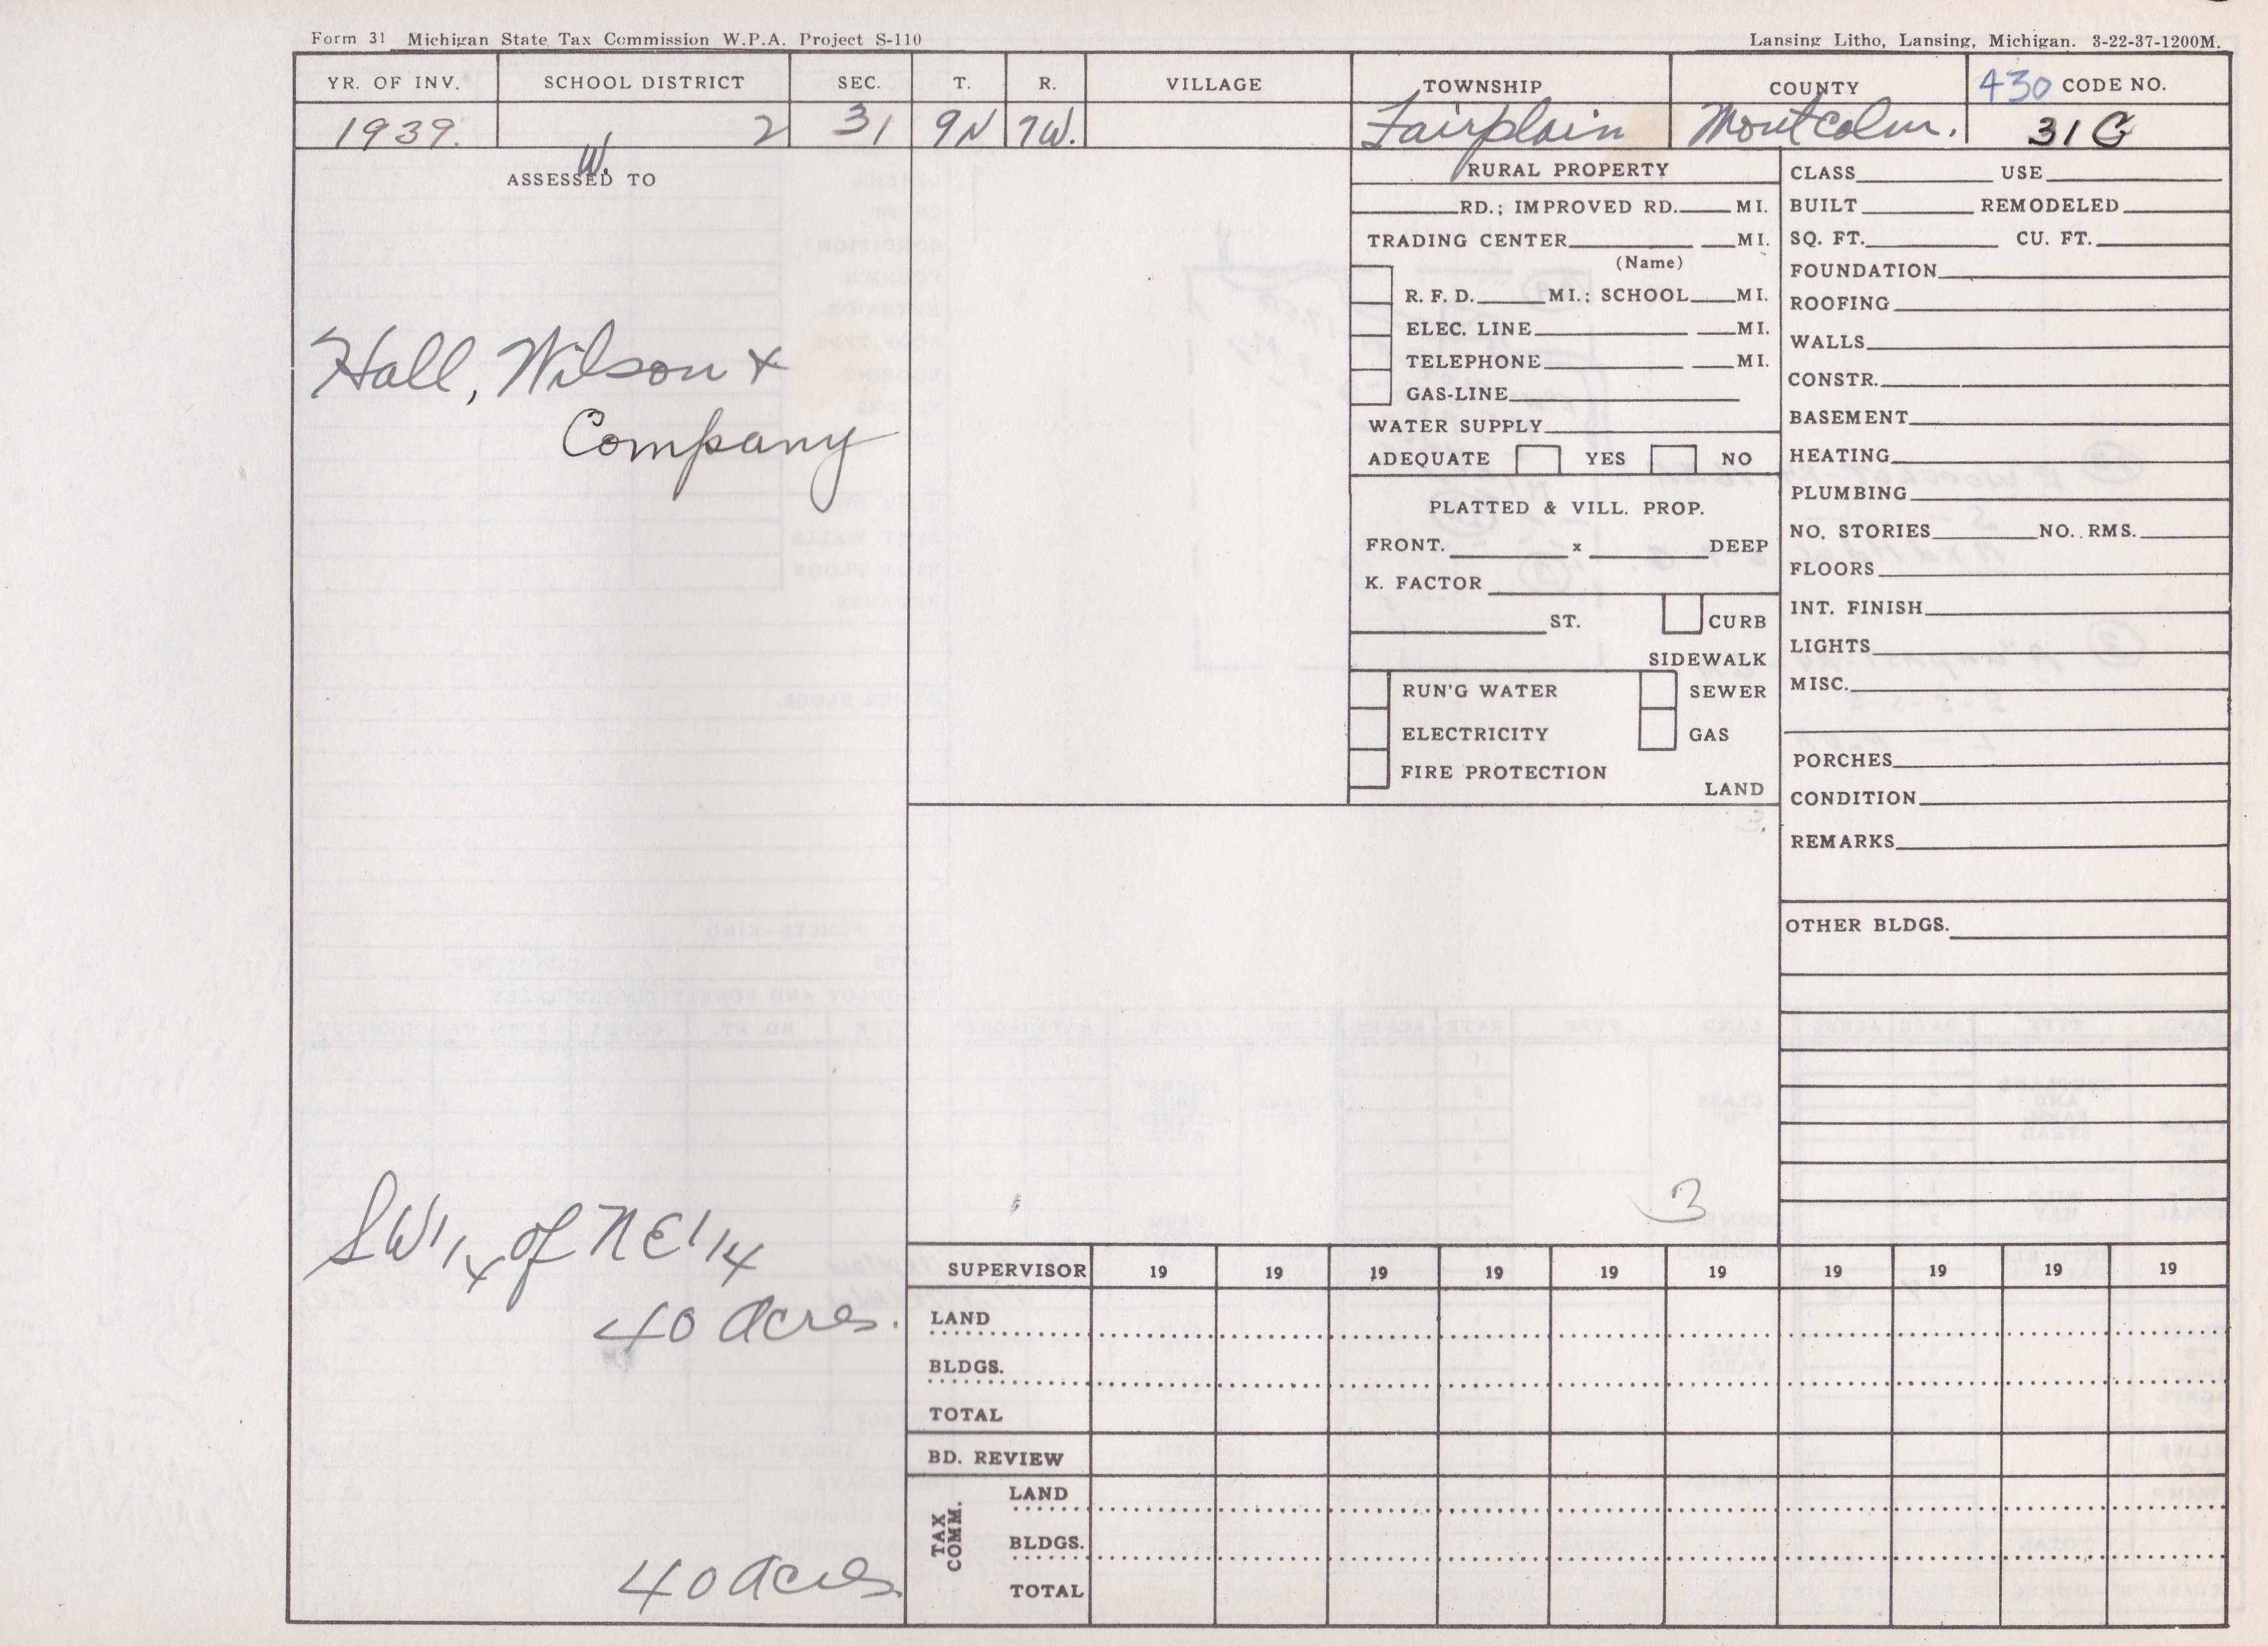 Form 31 Michigan State Tax Commission W.P.A. Project S-110
Lansing Litho, Lansing, Michigan. 3-22-37-1200M.
YR. OF INV. SCHOOL DISTRICT SEC. T. R. VILLAGE TOWNSHIP COUNTY 430 CODE NO.
1939. 2 31 9N 7W. Fairplain Montcalm. 31G
W.
ASSESSED TO
Hall, Wilson &
Company
SW 1/4 of NE 1/4
40 acres.
40 acres
RURAL PROPERTY
RD.; IMPROVED RD. MI.
TRADING CENTER MI.
(Name)
R. F. D. MI.; SCHOOL MI.
ELEC. LINE MI.
TELEPHONE MI.
GAS-LINE
WATER SUPPLY
ADEQUATE YES NO
PLATTED & VILL. PROP.
FRONT. x DEEP
K. FACTOR
ST. CURB
SIDEWALK
RUN'G WATER SEWER
ELECTRICITY GAS
FIRE PROTECTION
LAND
3
CLASS USE
BUILT REMODELED
SQ. FT. CU. FT.
FOUNDATION
ROOFING
WALLS
CONSTR.
BASEMENT
HEATING
PLUMBING
NO. STORIES NO. RMS.
FLOORS
INT. FINISH
LIGHTS
MISC.
PORCHES
CONDITION
REMARKS
OTHER BLDGS.
SUPERVISOR 19 19 19 19 19 19 19 19 19 19
LAND
BLDGS.
TOTAL
BD. REVIEW
TAX COMM.
LAND
BLDGS.
TOTAL